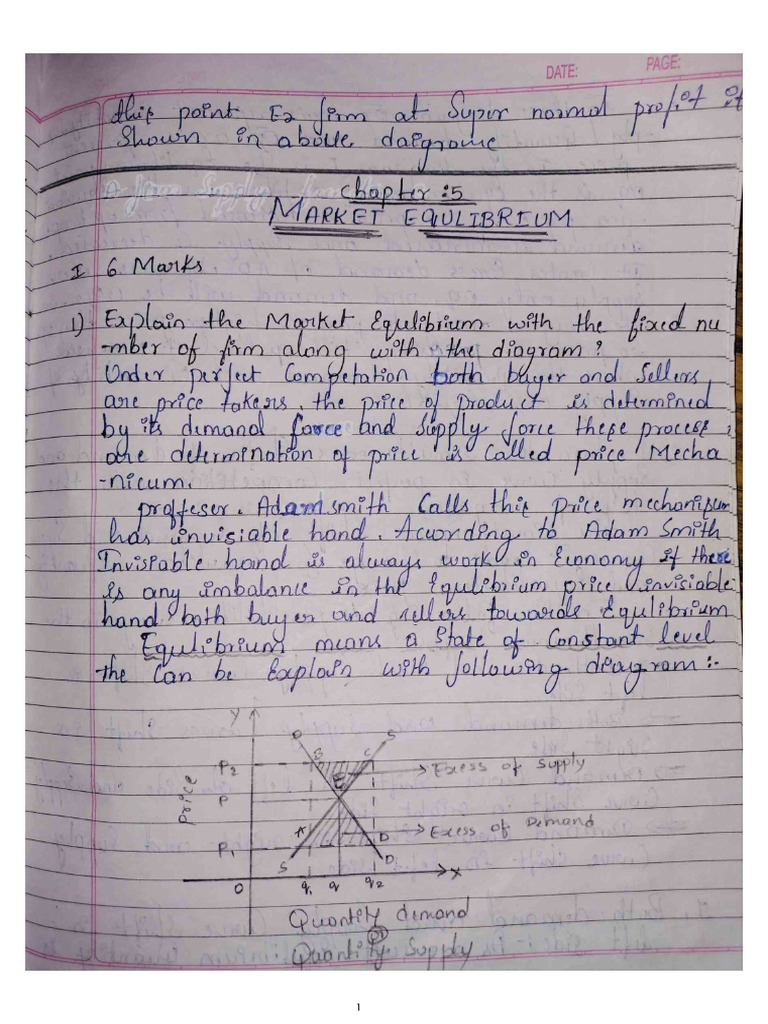 DATE:
PAGE:
this point E2 firm at Super normal profit it
Shown in aboue daigrame
Chapter :5
MARKET EQULIBRIUM
I 6 Marks
1) Explain the Market Equlibrium with the fixed nu
-mber of firm along with the diagram?
Under perfect Competation both buyer and Sellers
are price takers. the price of product is determined
by its demand force and Supply force these process
are determination of price is Called price Mecha
-nicum.
proffeser. Adam smith Calls this price mechanisum
has invisiable hand. According to Adam Smith
Invisiable hand is always work in Economy if there
is any imbalance in the Equlibrium price invisiable
hand both buyer and sellers towards Equlibrium
Equlibrium means a State of Constant level
the Can be Explain with following diagram:-
Y
D
S
P2
B
C
Excess of Supply
E
P
Price
A
D
Excess of Demand
P1
S
D
O
q1
q
q2
X
Quantity demand
Quantity Supply
1